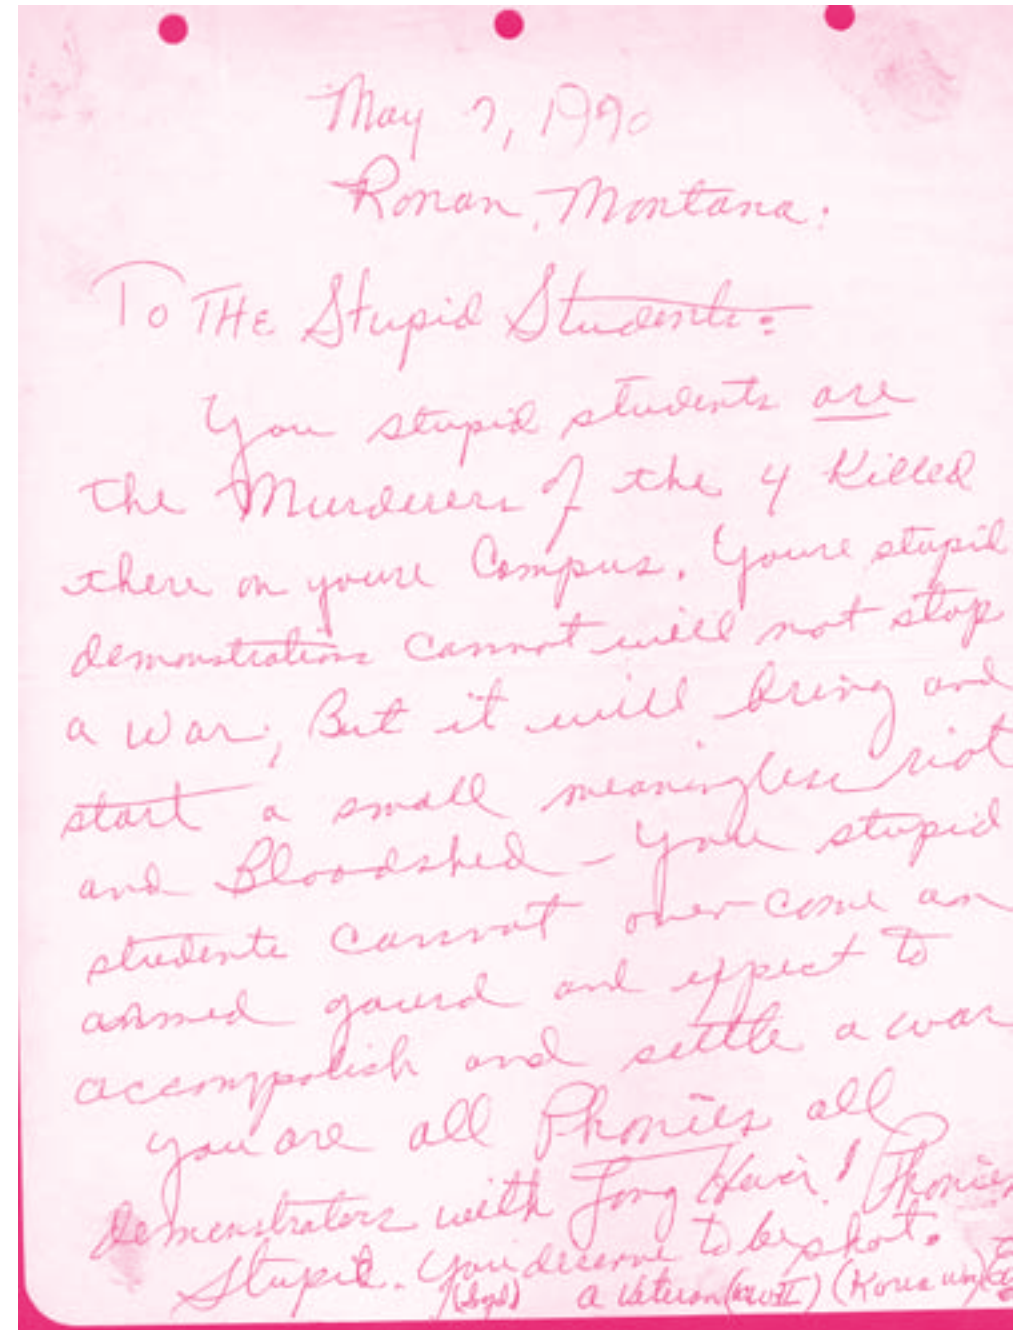 May 7, 1990
Ronan, Montana:
To THE Stupid Students:
You stupid students are
the Murderers of the 4 Killed
there on youre Campus. Youre stupid
demonstrations cannot will not stop
a war; But it will bring and
start a small meaningless riot
and Bloodshed - You stupid
students cannot over-come an
armed gaurd and expect to
accompolish and settle a war
you are all Phonies all
demenstrators with Long Hair! Phonies
Stupid. You deserve to be shot.
(Sngd) a Veteran (WWII) (Korea War)